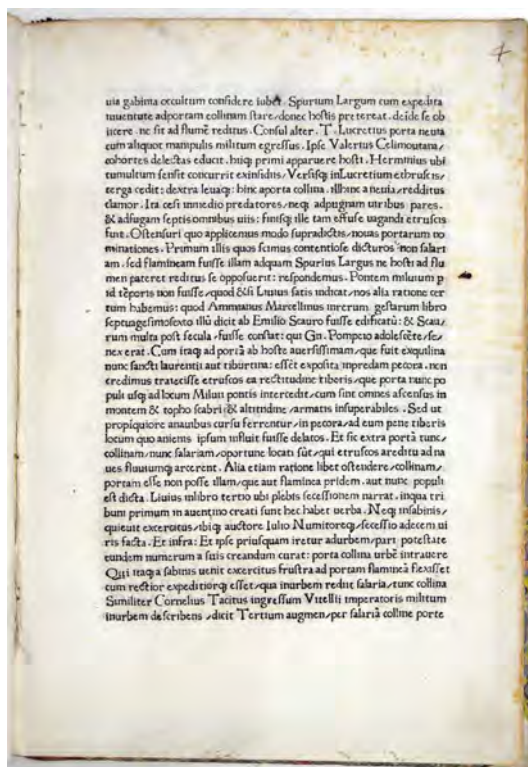 4
uia gabina occultum considere iubet. Spurium Largum cum expedita
iuuentute adportam collinam stare/donec hostis pretereat. deide se ob
iicere. ne sit ad flumē reditus. Consul alter. T. Lucretius porta neuia
cum aliquot manipulis militum egressus. Ipse Valerius Celimontana/
cohortes delectas educit. hiq; primi apparuere hosti. Herminius ubi
tumultum sensit concurrit exinsidiis/Versisq; inLucretium etruscis/
terga cedit: dextra leuaq; hinc aporta collina. illinc a neuia/redditus
clamor. Ita cesi inmedio predatores/neq; adpugnam uiribus pares.
& adfugam septis omnibus uiis: finisq; ille tam effuse uagandi etruscis
fuit. Ostensuri quo applicemus modo supradictis/nouas portarum no
minationes. Primum illis quos scimus contentiose dicturos non salari
am. sed flamineam fuisse illam adquam Spurius Largus ne hosti ad flu
men pateret reditus se opposuerit: respondemus. Pontem miluium p
id tēporis non fuisse/quod & si Liuius satis indicat/nos alia ratione cer
tum habemus: quod Ammianus Marcellinus inrerum gestarum libro
septuagesimosexto illū dicit ab Emilio Scauro fuisse edificatū: & Scau/
rum multa post secula/fuisse constat: qui Gn. Pompeio adolescēte/se/
nex erat. Cum itaq; ad portā ab hoste auersissimam/que fuit exquilina
nunc sancti laurentii aut tiburtina: esset exposita inpredam pecora. non
credimus traiecisse etruscos ea rectitudine tiberis/que porta nunc po
puli usq; ad locum Miluii pontis intercedit/cum sint omnes ascensus in
montem & topho scabri & altitudine/armatis insuperabiles. Sed ut
propīquiore anauibus cursu ferrentur/in pecora/ad eum pene tiberis
locum quo aniens ipsum influit fuisse delatos. Et sic extra portā tunc/
collinam/nunc salariam/oportune locati sūt/qui etruscos areditu ad na
ues fluuiumq; arcerent. Alia etiam ratione libet ostendere/collinam/
portam esse non posse illam/que aut flaminea pridem. aut nunc populi
est dicta. Liuius inlibro tertio ubi plebis secessionem narrat. inqua tri
buni primum in auentino creati sunt hec habet uerba. Neq; insabinis/
quieuit exercitus/ibiq; auctore Iulio Numitoreq;/secessio adecem ui
ris facta. Et infra: Et ipse priusquam iretur adurbem/pari potestate
eundem numerum a suis creandum curat: porta collina urbē intrauere
Qui itaq; a sabinis uenit exercitus frustra ad portam flamineā flexisset
cum rectior expeditiorq; esset/qua inurbem rediit salaria/tunc collina
Similiter Cornelius Tacitus ingressum Vitellii imperatoris militum
inurbem describens/dicit Tertium augmen/per salariā colline porte